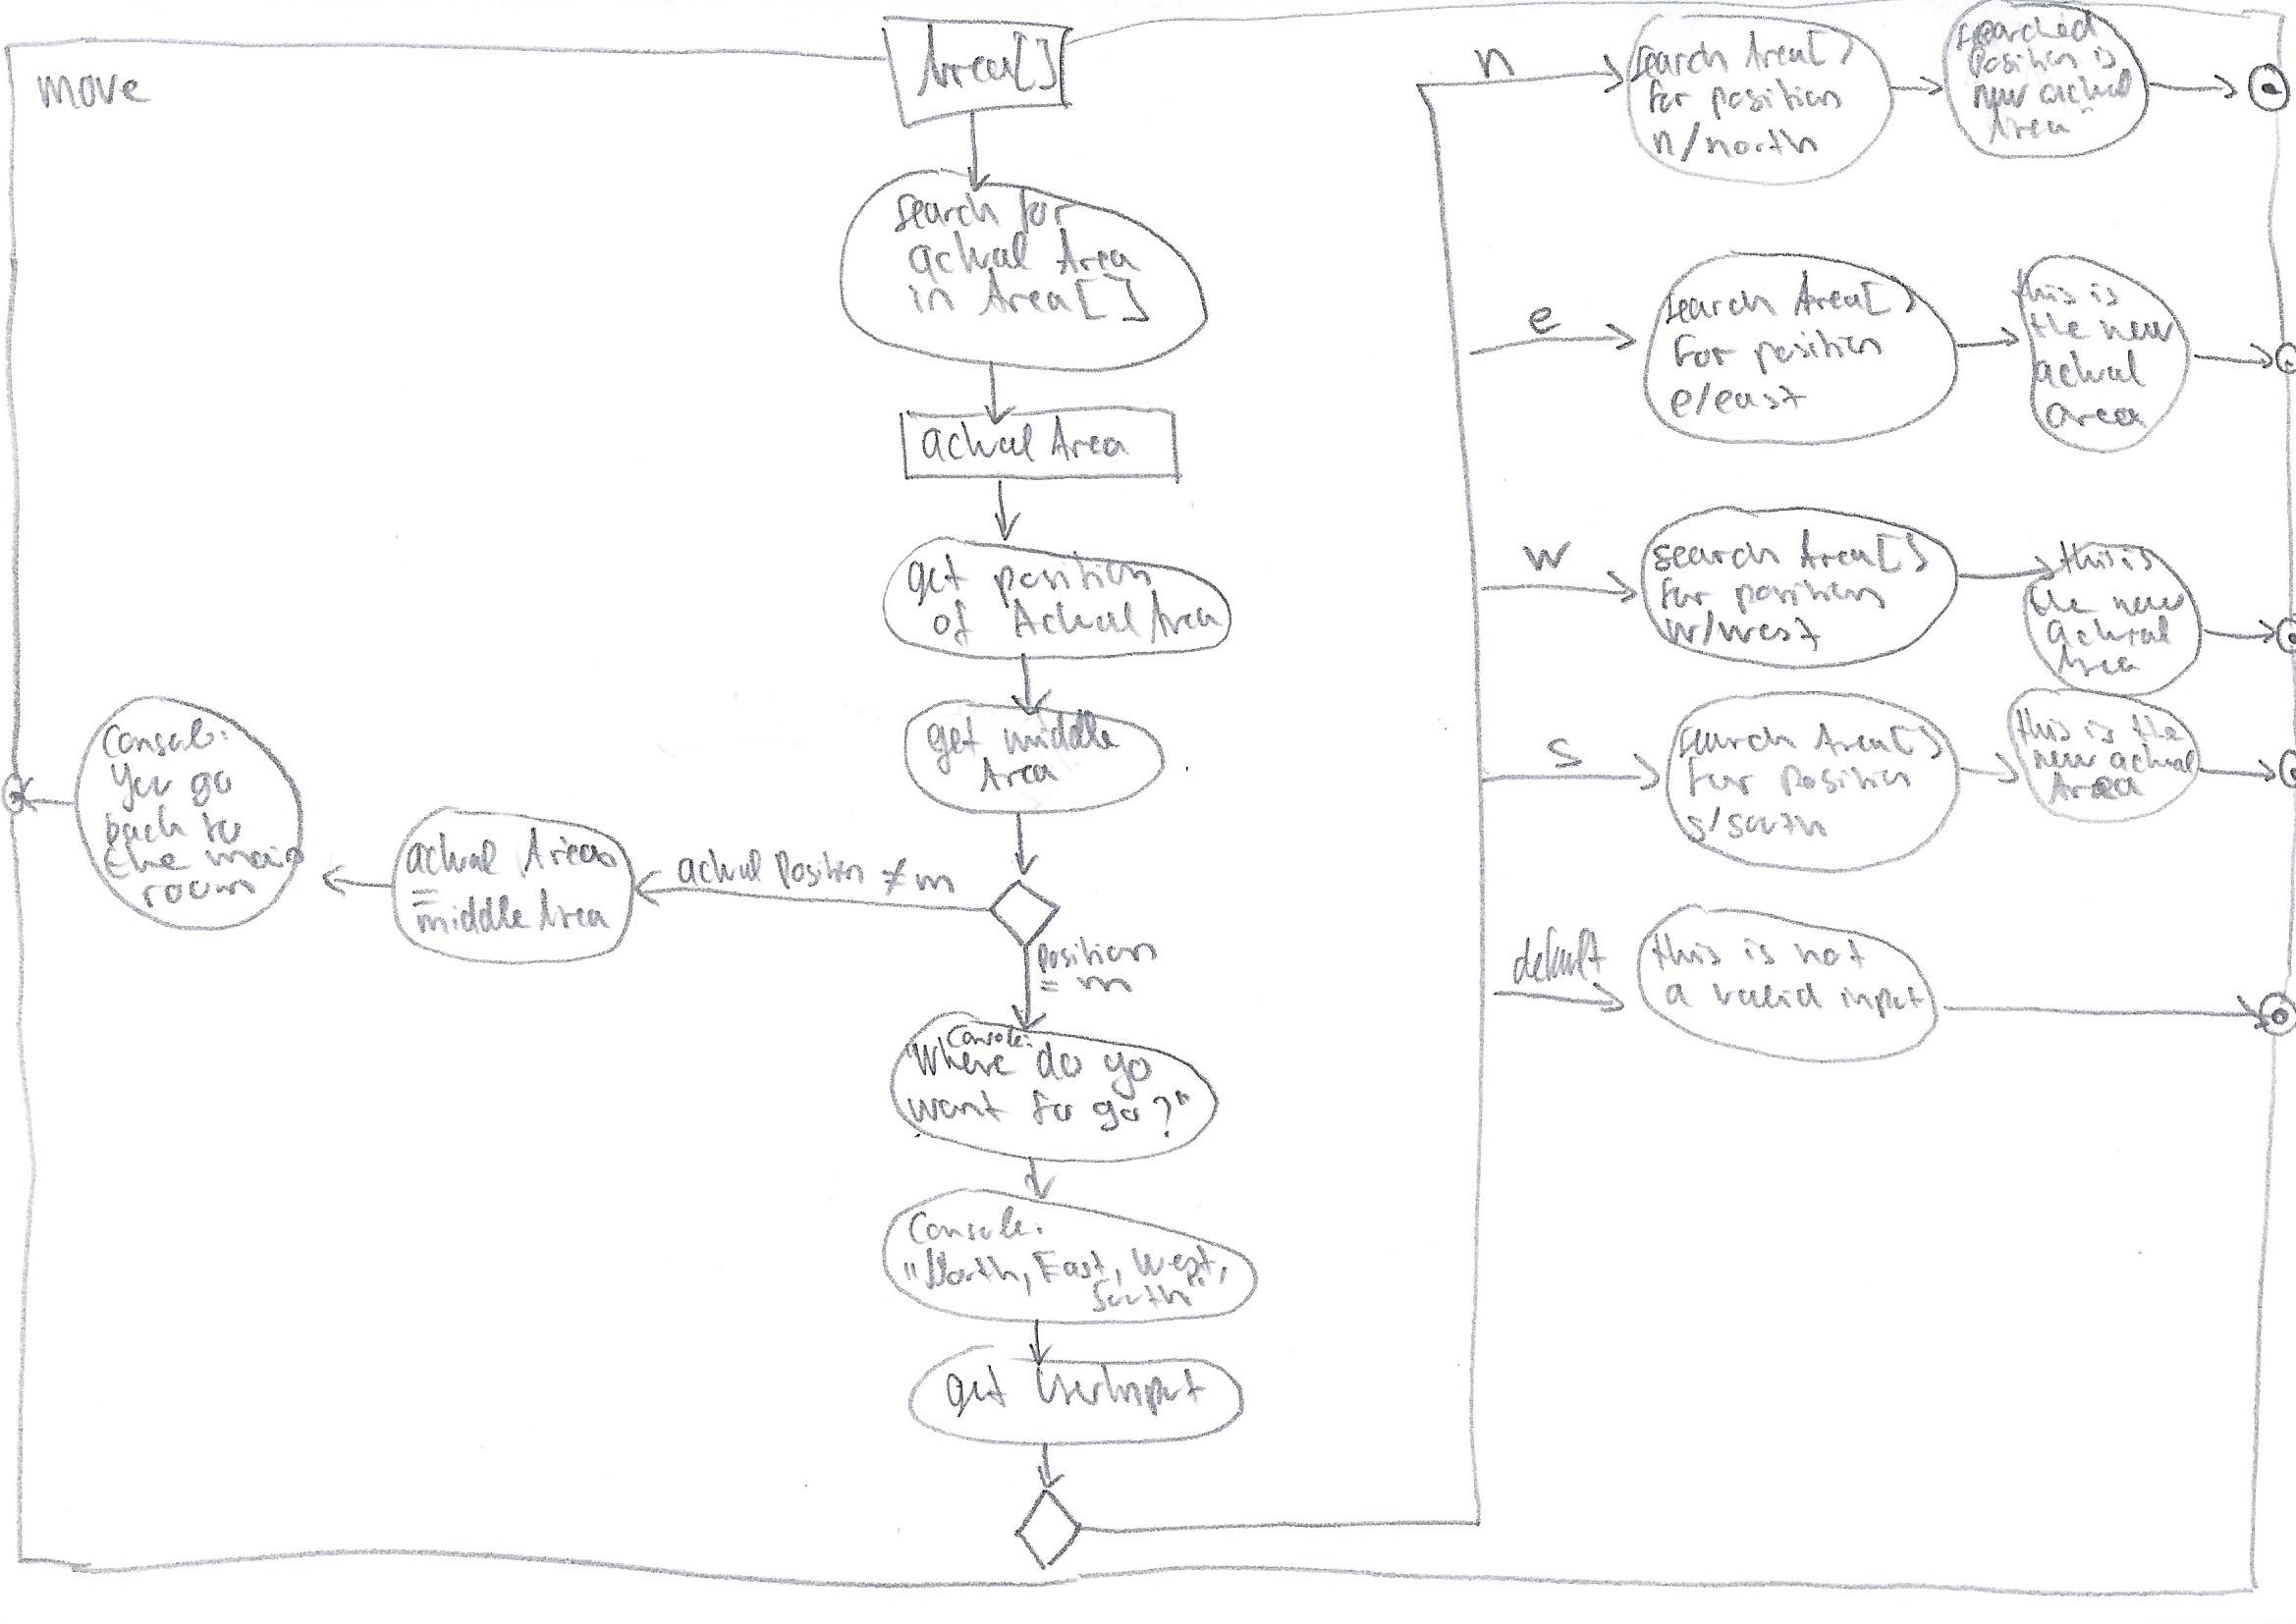 move
Area[]
search for
actual Area
in Area[]
actual Area
get position
of Actual Area
get middle
Area
actual Position ≠ m
actual Area
=
middle Area
Console:
You go
back to
the main
room
Position
= m
Console:
"Where do yo
want to go?"
Console:
"North, East, West,
South"
get UserInput
n
search Area[]
for position
n/north
searched
Position is
new actual
Area
e
search Area[]
for position
e/east
this is
the new
actual
area
w
search Area[]
for position
w/west
this is
the new
actual
Area
s
search Area[]
for position
s/south
this is the
new actual
Area
default
this is not
a valid input